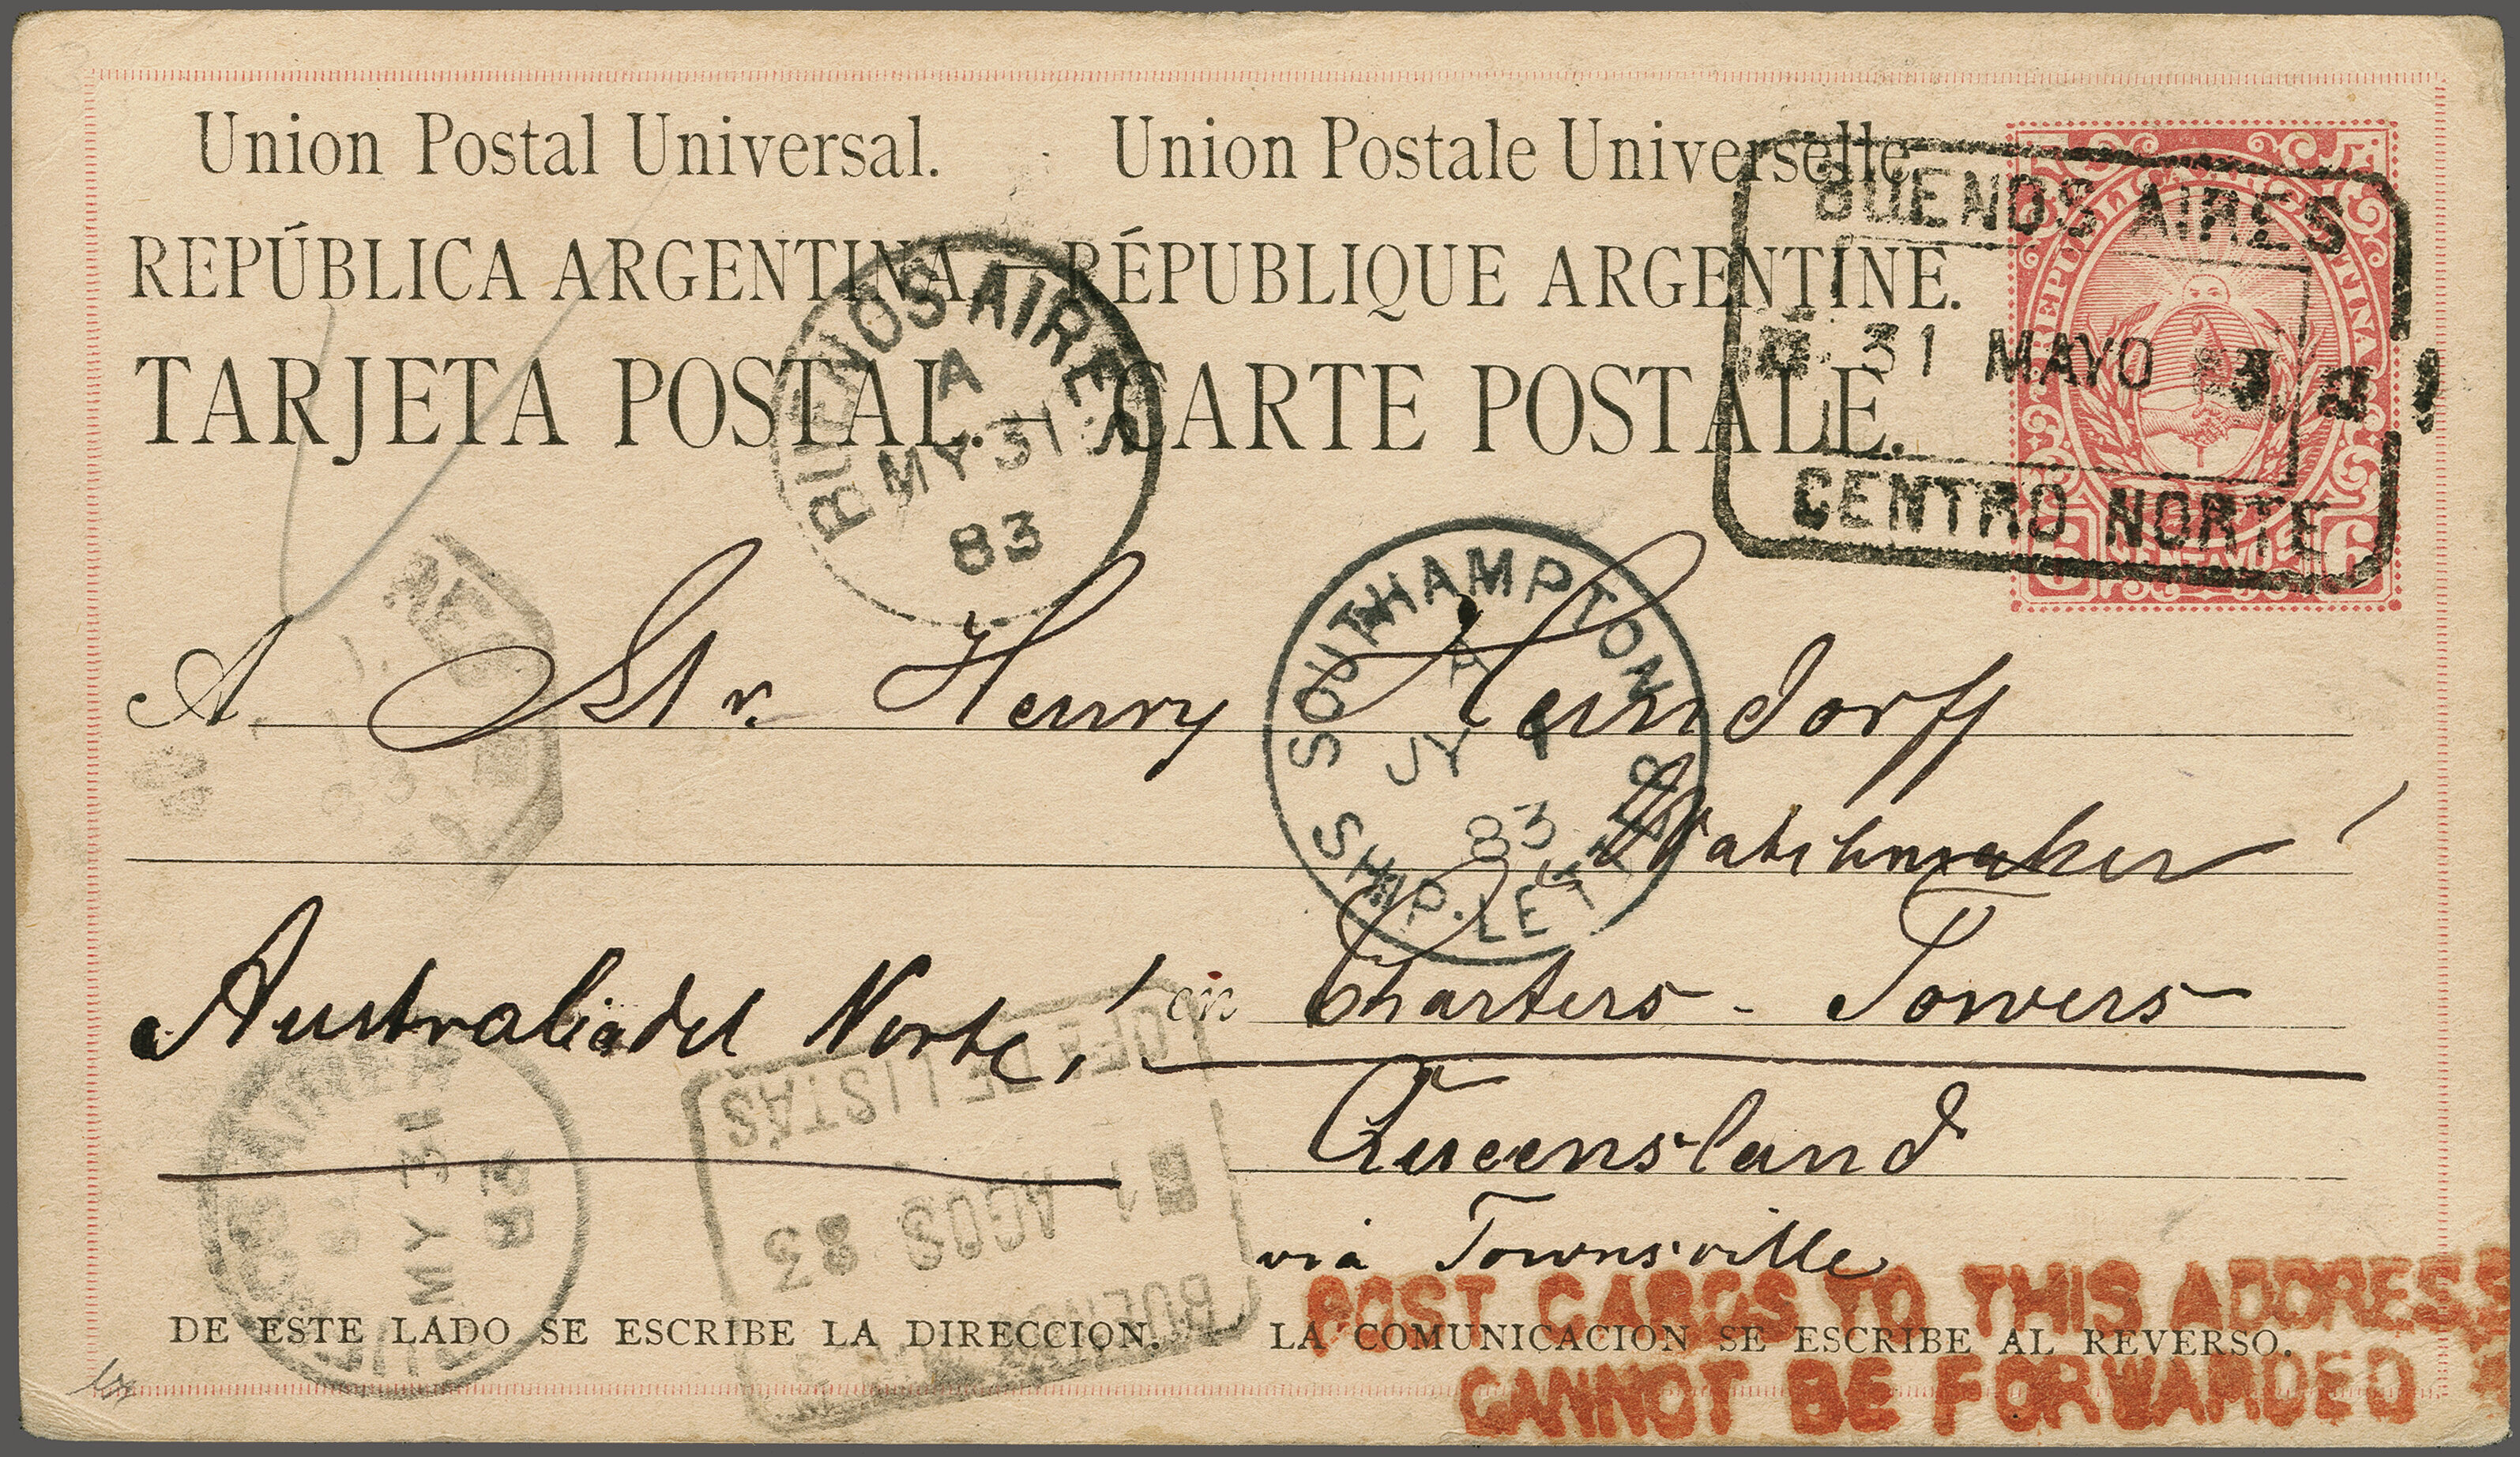 Union Postal Universal. Union Postale Universelle
REPÚBLICA ARGENTINA. — RÉPUBLIQUE ARGENTINE.
TARJETA POSTAL. — CARTE POSTALE.
BUENOS AIRES
31 MAYO 83
CENTRO NORTE
REPUBLICA ARGENTINA
6 CENTAVOS 6
BUENOS AIRES
A
MY 31
83
SOUTHAMPTON
A
JY 1
83
SHIP-LETTER
A Sr. Henry Heindorff
Watchmaker
Australia del Norte, en Charters-Towers
Queensland
via Townsville
OFA DE LISTAS
1 AGOS 83
BUENOS
MY 31
83
POST CARDS TO THIS ADDRESS
CANNOT BE FORWARDED
DE ESTE LADO SE ESCRIBE LA DIRECCION. LA COMUNICACION SE ESCRIBE AL REVERSO.